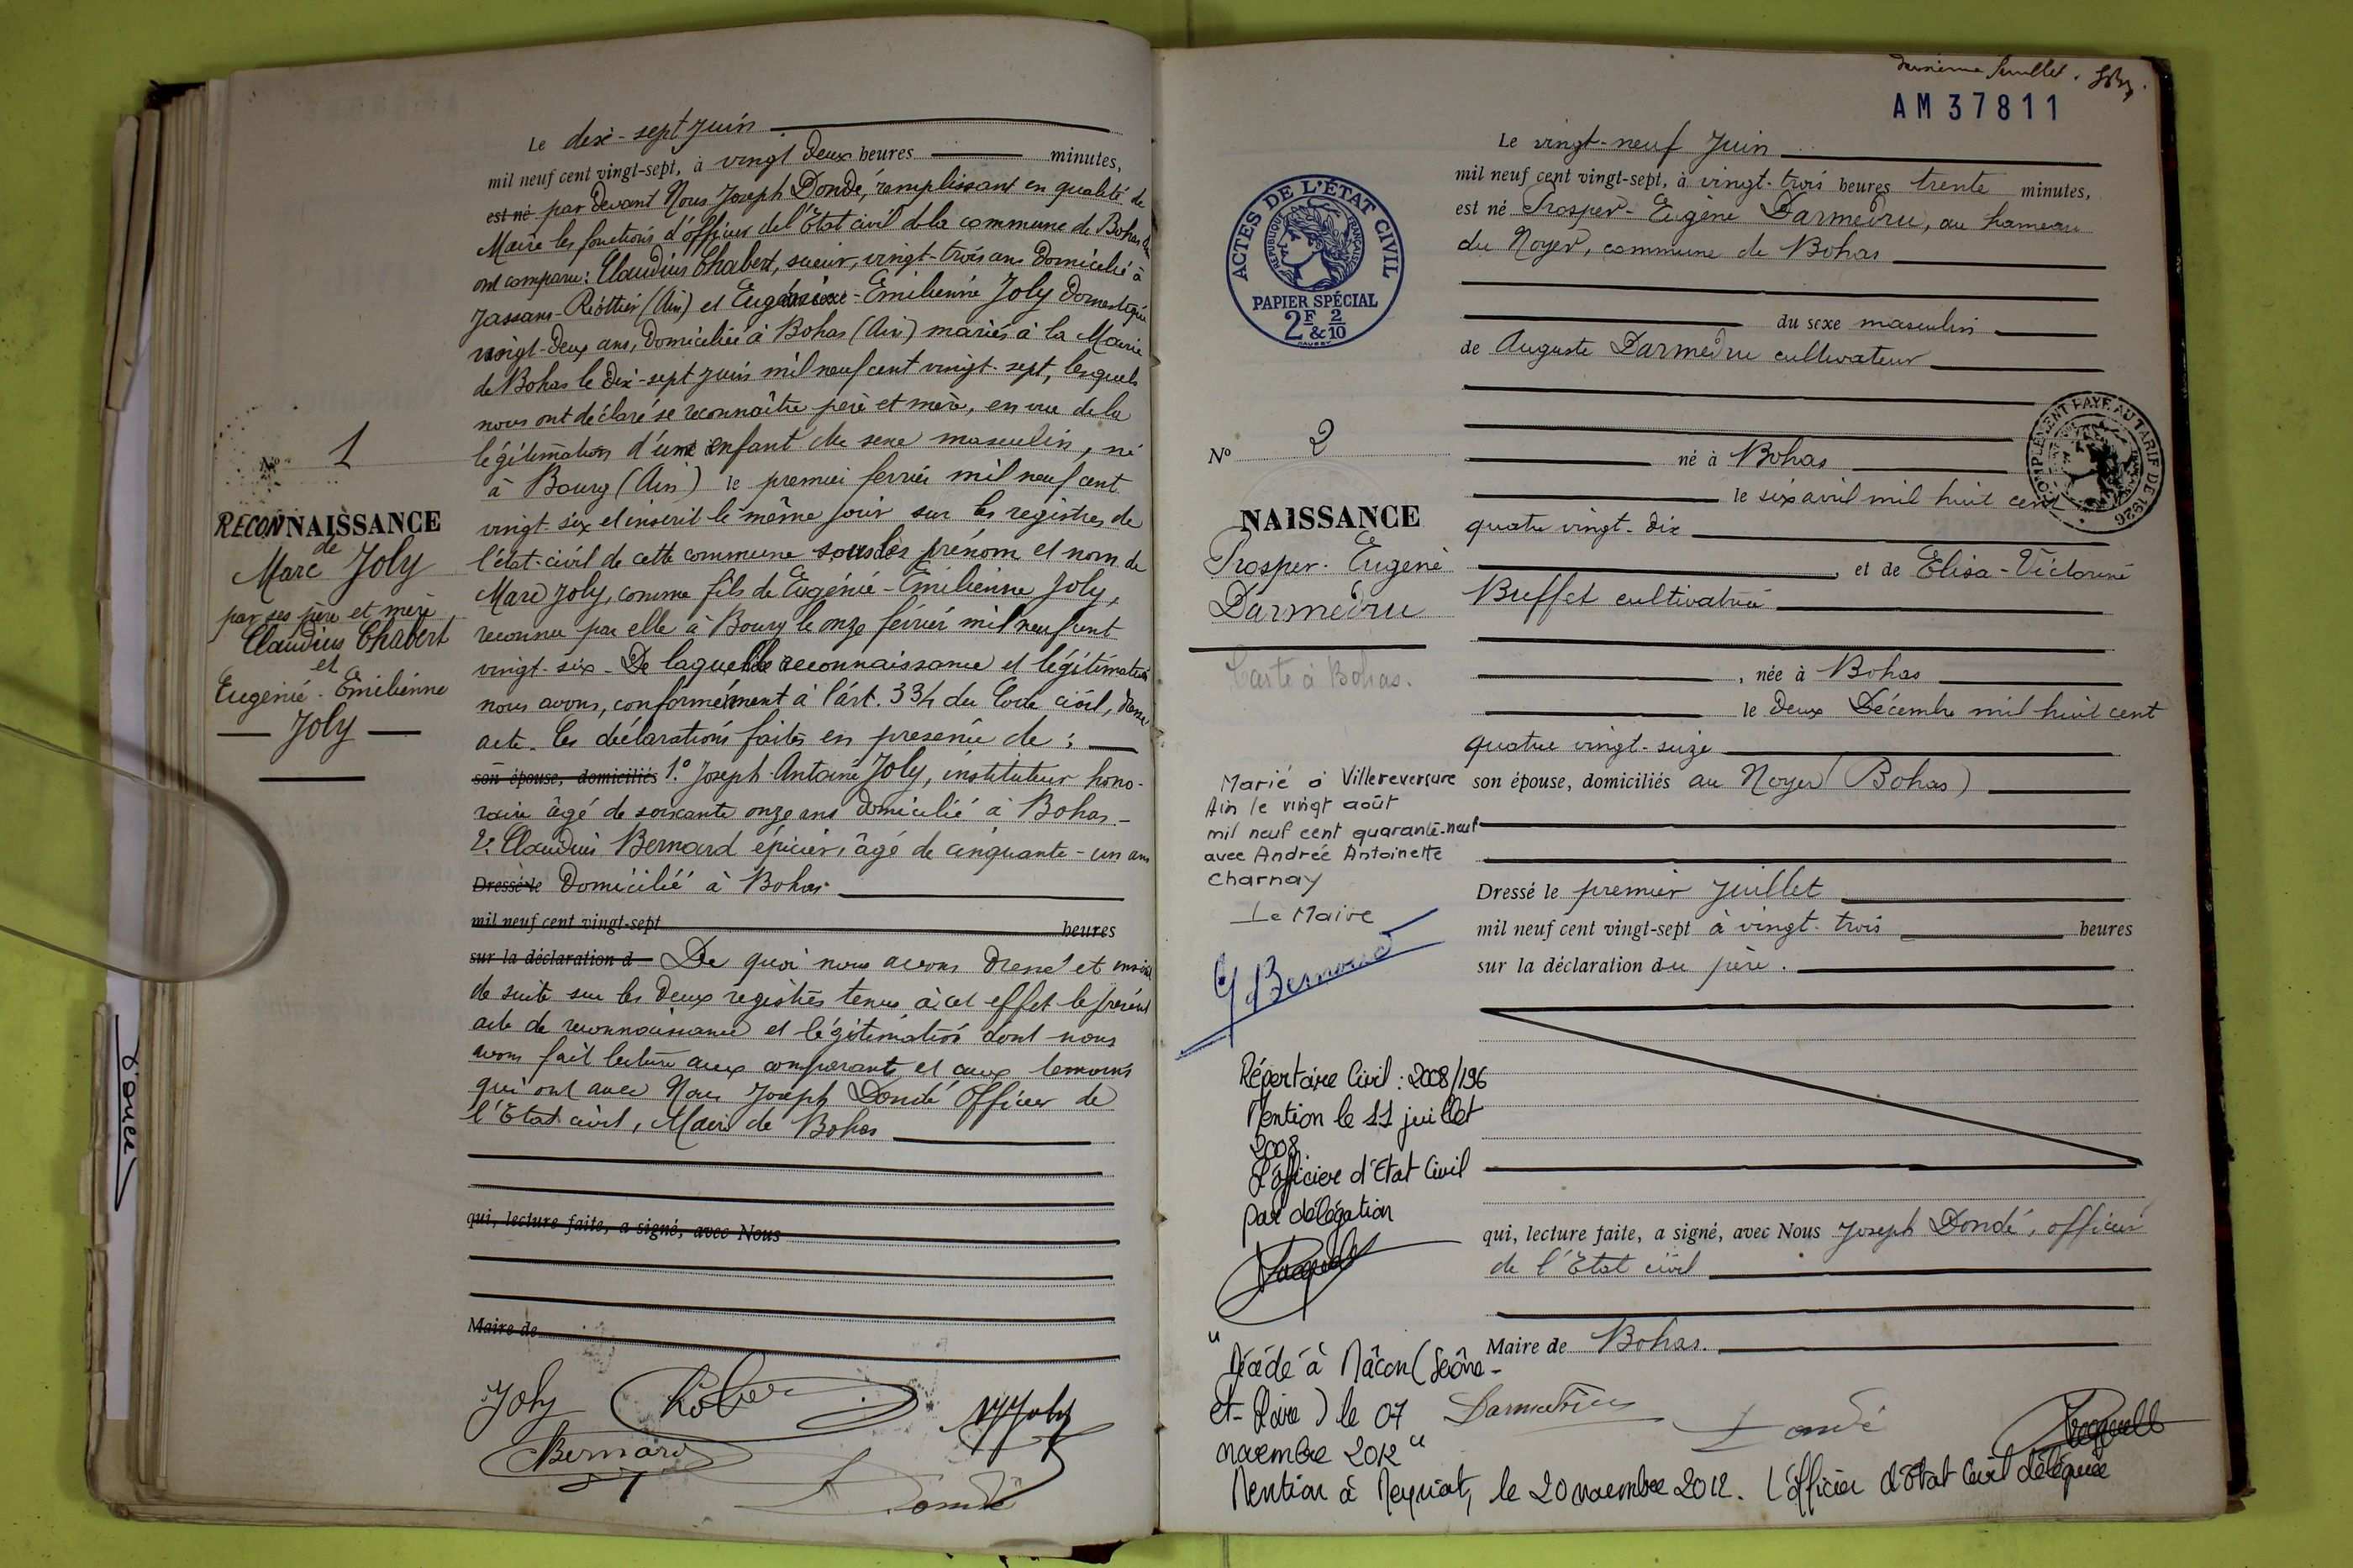 Le dix-sept Juin
mil neuf cent vingt-sept, à vingt deux heures minutes,
est né par devant Nous Joseph Dondé, remplissant en qualité de
Maire les fonctions d'officier de l'Etat civil de la commune de Bohas
ont comparu: Claudius Chabert, scieur, vingt-trois ans domicilié à
Jassans-Riottier (Ain) et Eugénie-Emilienne Joly domestique
vingt-deux ans, domiciliée à Bohas (Ain) mariés à la Mairie
de Bohas le dix-sept juin mil neuf cent vingt-sept, lesquels
nous ont déclaré se reconnaître père et mère, en vue de la
légitimation d'un enfant du sexe masculin, né
à Bourg (Ain) le premier février mil neuf cent
vingt-six et inscrit le même jour sur les registres de
l'état-civil de cette commune sous les prénom et nom de
Marc Joly, comme fils de Eugénie-Emilienne Joly,
reconnu par elle à Bourg le onze février mil neuf cent
vingt-six - De laquelle reconnaissance et légitimation
nous avons, conformément à l'art. 334 du Code civil, donné
acte. Les déclarations faites en présence de :
son épouse, domiciliés 1.° Joseph-Antoine Joly, instituteur hono-
raire âgé de soixante onze ans domicilié à Bohas -
2. Claudius Bernard épicier, âgé de cinquante-un ans
Dressé le Domicilié à Bohas
mil neuf cent vingt-sept heures
sur la déclaration d De quoi nous avons dressé et inscrit
de suite sur les deux registres tenus à cet effet le présent
acte de reconnaissance et légitimation dont nous
avons fait lecture aux comparants et aux témoins
qui ont avec Nous Joseph Dondé Officier de
l'Etat civil, Maire de Bohas
qui, lecture faite, a signé, avec Nous
Maire de
Joly
Bernard
Dondé
N° 1
RECONNAISSANCE
de
Marc Joly
par ses père et mère
Claudius Chabert
et
Eugénie-Emilienne
Joly
AM 37811
ACTES DE L'ÉTAT CIVIL
RÉPUBLIQUE FRANÇAISE
PAPIER SPÉCIAL
2F & 2/10
Le vingt-neuf Juin
mil neuf cent vingt-sept, à vingt-trois heures trente minutes,
est né Prosper-Eugène Darmedru, au hameau
du Noyer, commune de Bohas
du sexe masculin
de Auguste Darmedru cultivateur
COMPLÉMENT PAYÉ AU TARIF DE 1926
né à Bohas
le six avril mil huit cent
quatre vingt-dix
et de Elisa-Victorine
Buffet cultivatrice
, née à Bohas
le deux Décembre mil huit cent
quatre vingt-seize
son épouse, domiciliés au Noyer (Bohas)
Dressé le premier Juillet
mil neuf cent vingt-sept à vingt-trois heures
sur la déclaration du père.
qui, lecture faite, a signé, avec Nous Joseph Dondé, officier
de l'Etat civil
Maire de Bohas.
Darmedru
Dondé
N° 2
NAISSANCE
Prosper-Eugène
Darmedru
Carte à Bohas.
Marié à Villereversure
Ain le vingt août
mil neuf cent quarante-neuf
avec Andrée Antoinette
Charnay
Le Maire
Bernard
Répertoire Civil : 2008/196
Mention le 11 juillet
2008
L'officier d'Etat Civil
par délégation
"Décédé à Mâcon (Saône-
et-Loire) le 07
novembre 2012"
Mention à Meyriat, le 20 novembre 2012. L'officier d'Etat Civil déléguée